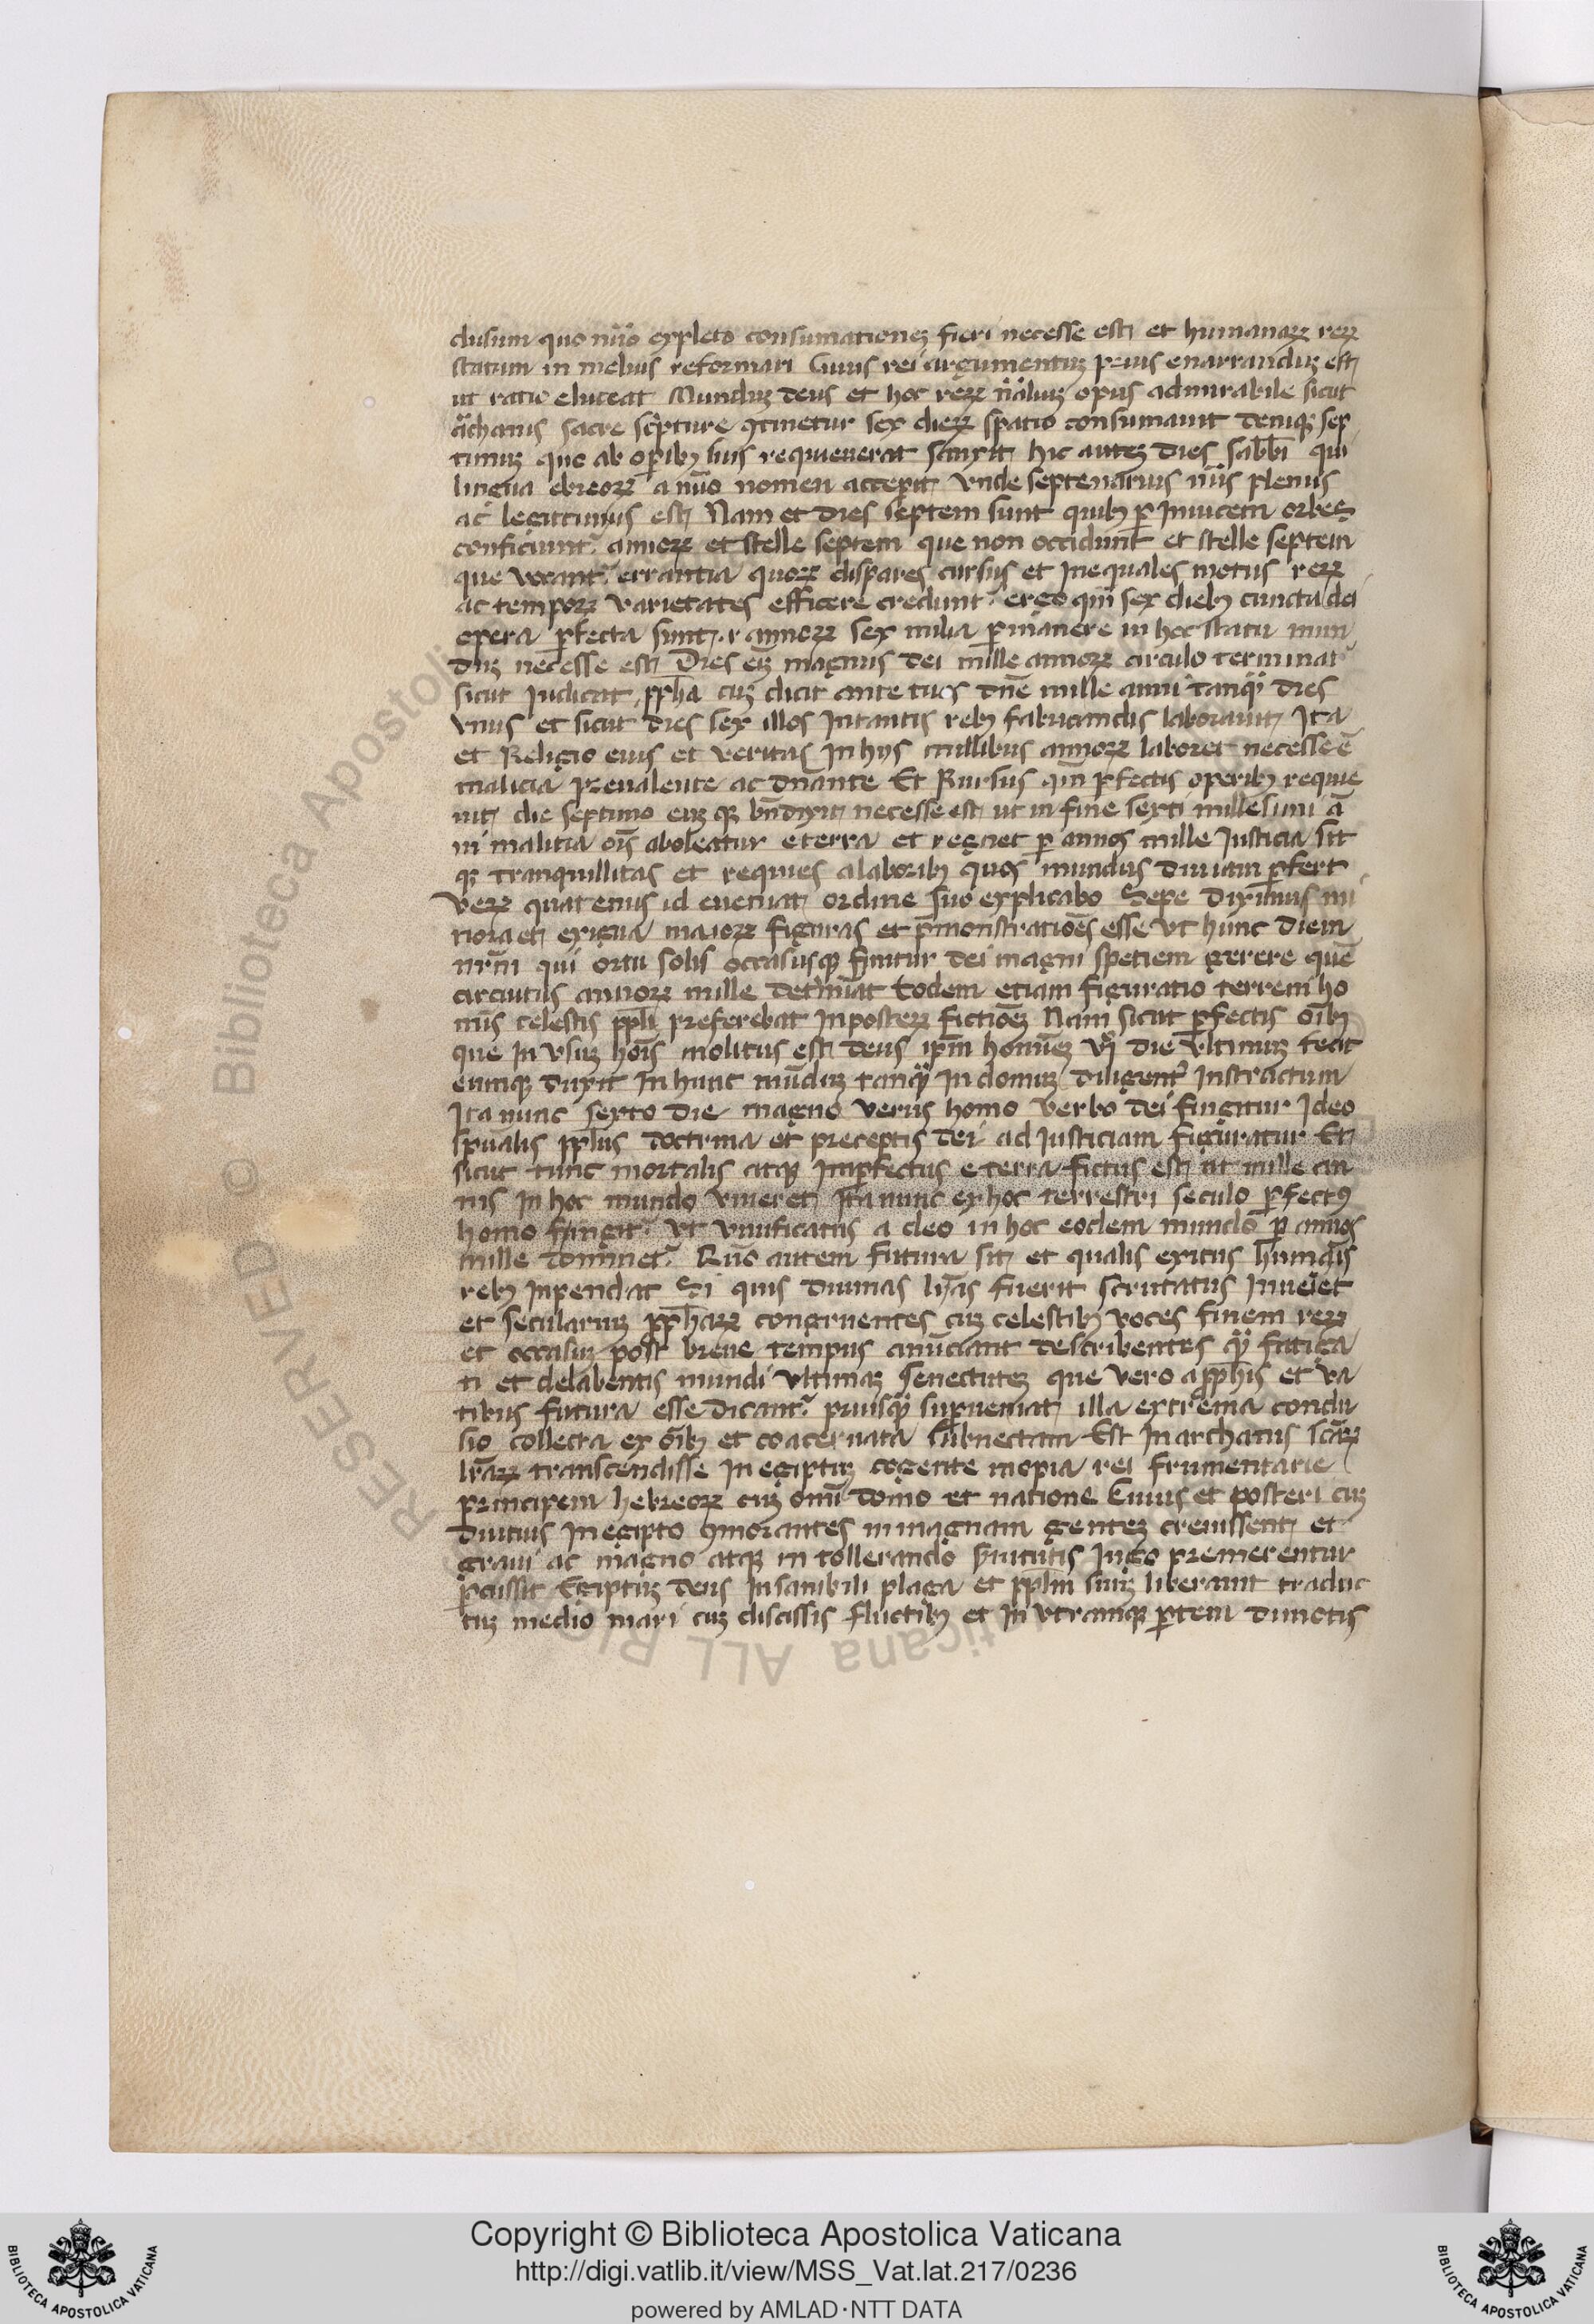 clusum quo nu͞o expleto consumationeꝫ fieri necesse est et humanaꝝ reꝝ
statum in melius reformari Cuius rei argumentuꝫ prius enarranduꝫ est
ut ratio eluceat Munduꝫ deus et hoc reꝝ n͞aliuꝫ opus admirabile sicut
archanis sacre sc͞ripture ꝯtinetur sex dieꝝ spatio consumauit deniqꝫ sep
timuꝫ quo ab oꝑibꝫ suis requieuerat sanxit hic auteꝫ dies sabb͞i qui
lingua ebreoꝝ a nu͞o nomen accepit vnde septenarius nu͞s plenus
ac legittimus est Nam et dies septem sunt quibꝫ ꝑ inuicem orbes
conficiunt᷑ annoꝝ et stelle septem que non occidunt et stelle septem
que vocant᷑ errantia quoꝝ dispares cursus et inequales motus reꝝ
ac tempoꝝ varietates efficere credunt᷑ ergo qm͞ sex diebꝫ cuncta dei
opera ꝑfecta sunt ꝑ annoꝝ sex milia ꝑmanere in hoc statu mun
duꝫ necesse est Dies eiꝫ magnus dei mille annoꝝ circulo terminat᷑
sicut Judicat ꝓph͞a cuꝫ dicit ante tuos dn͞e mille anni tanqͣ dies
vnus et sicut dies sex illos In tantis rebꝫ fabricandis laborauit Ita
et Religio eius et veritas In hys millibus annoꝝ laboret necesse e͞
malicia preualente ac dn͞ante Et Rursus qm͞ ꝑfectis operibꝫ requie
uit die septimo euꝫ qꝫ bn͞dixit necesse est ut in fine sexti millesimi a͞
ni malitia o͞is aboleatur e terra et regnet ꝑ annos mille Justicia sit
qꝫ tranquillitas et requies a laboribꝫ quos mundus diu iam ꝑfert
Veꝝ quatenus id eueniat ordine suo explicabo Sepe diximus mi
nora et exigua maioꝝ figuras et p͞monstratio͞es esse vt hunc diem
nr͞m qui ortu solis occasusqꝫ finitur dei magni spetiem gerere que͞
circuitus annoꝝ mille det᷑minat Eodem etiam figuratio terreni ho
mi͞s celestis ppl͞i preferebat In posteꝝ fictio͞eꝫ Nam sicut ꝑfectis o͞ibꝫ
que In vsuꝫ ho͞is molitus est deus ip͞m homi͞eꝫ vi die vltimuꝫ fecit
eumqꝫ duxit In hunc mu͞duꝫ tanqͣ In domuꝫ diligent᷑ Instructum
Ita nunc sexto die magno verus homo verbo dei fingitur Ideo
sp͞ualis ppl͞us doctrina et preceptis dei ad Justiciam figuratur Et
sicut tunc mortalis atqꝫ Imꝑfectus e terra fictus est ut mille an
nis In hoc mundo viueret Ita nunc ex hoc terrestri seculo ꝑfectꝰ
homo fingit᷑ vt viuificatus a deo in hoc eodem mundo ꝑ annos
mille dominet᷑ Quo͞ autem futura sit et qualis exitus humanis
rebꝫ Inpendat Si quis diuinas lr͞as fuerit scrutatus Inueiet
et seculariuꝫ ꝓph͞aꝝ congruentes cuꝫ celestibꝫ voces finem reꝝ
et occasuꝫ post breue tempus anu͞ciant describentes qͣ fatiga
ti et delabentis mundi vltimaꝫ senectuteꝫ que vero a ꝓph͞is et va
tibus futura esse dicant᷑ priusqͣ suꝑueniat illa extrema conclu
sio collecta ex o͞ibꝫ et coaceruata subnectam Est In archanis sc͞aꝝ
lr͞aꝝ transcendisse In egiptuꝫ cogente inopia rei frumentarie
principem hebreoꝝ cuꝫ omi͞ domo et natione Cuius et posteri cuꝫ
diutius In egipto ꝯmorantes in magnam genteꝫ creuissent et
graui ac magno atqꝫ in tollerando s͞uitutis Jugo premerentur
ꝑcussit Egiptuꝫ deus Insanibili plaga et ppl͞m suuꝫ liberauit traduc
tuꝫ medio mari cuꝫ discissis fluctibꝫ et In vtramqꝫ ꝑtem dimotis
RESERVED © Biblioteca Apostolica Vaticana ALL RIG
Copyright © Biblioteca Apostolica Vaticana
http://digi.vatlib.it/view/MSS_Vat.lat.217/0236
powered by AMLAD·NTT DATA
BIBLIOTECA APOSTOLICA VATICANA
BIBLIOTECA APOSTOLICA VATICANA